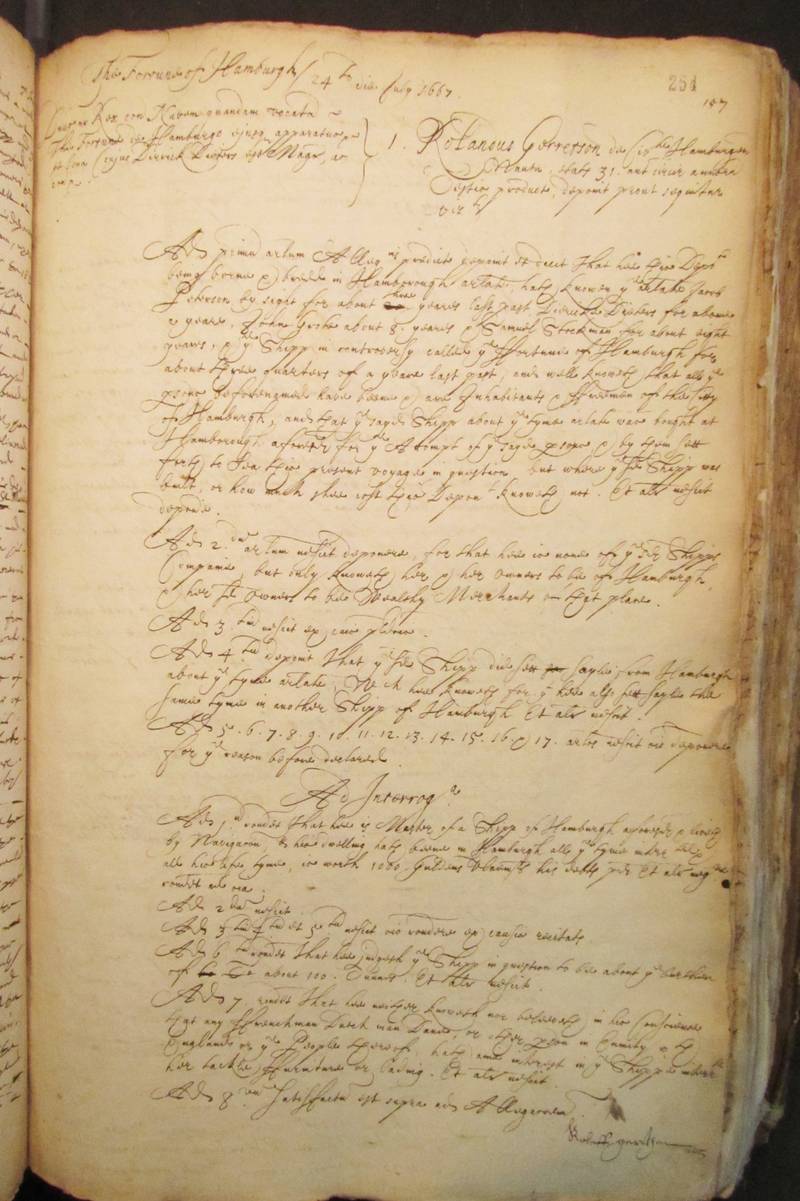 The Fortune of Hamburgh / 24th die July 1667
264
107
Rex con Navem quandam vocata
The Fortune de Hamburgo ejusq apparatus
et con Dirrick Dreters Magr ac
1. Rolandus Gerretson de Civitate Hamburgen
Nauta, ætatis 31 aut circa annoru
Testis productus, deponit prout sequitur
vizt
Ad primu artum Allegnis predicte deponit et dicit That hee this Depot
being borne & bredd in Hamborough artate, hath knowen ye artate Jacob
Peterson by sight for about three yeares last past Diericke Dreters for about
2 yeares, Johne Grote about 8 yeares & Samuel Stockman for about eight
yeares, & ye Shipp in controversy called ye ffortune of Hamburgh for
about three quarters of a yeare last past, and well knoweth that all ye
psons beforenamed have beene & are Inhabitants & ffreemen of the Citty
of Hamburgh, and that ye sayd Shipp about ye tyme artate was bought at
Hamborough aforesd for ye Accompt of ye sayd psons & by them sett
forth to Sea this present voyage in question but where ye sd Shipp was
built, or how much shee cost this Depont knoweth not. Et alr nescit
deponere.
Ad 2dum artum nescit deponere, for that hee is none of ye sd Shipps
Companie, but only knoweth her & her Owners to be of Hamburgh,
& her sd Owners to bee Wealthy Merchants in that place.
Ad 3tium nescit
Ad 4tum deponit That ye sd Shipp did sett sayle from Hamburgh
about ye tyme artate, Wch hee knoweth for yt hee also sett sayle the
same tyme in another Shipp of Hamburgh Et alr nescit.
Ad 5. 6. 7. 8. 9. 10. 11. 12. 13. 14. 15. 16. & 17. artos nescit deponere
for ye reason before declared
Ad Interrogria
Ad 1 rondet That hee is Master of a Shipp of Hamburgh aforesd & liveth
by Navigacon, & his dwelling hath beene in Hamburgh all ye tyme interrate &
all his life tyme, is worth 1000 Guldens his debts pd: Et alr negative
rondet
Ad 2dum nescit
Ad 3tium 4tum et 5tum nescit rondere ex causis recitatis
Ad 6tum rondet That hee judgeth ye Shipp in question to bee about ye burthen
of about 100. Tunns. Et alr nescit.
Ad 7 rondet That hee neither knoweth nor beleeveth in his Conscience
that any ffrenchman Dutch man Dane, or other pson in Enmity with
England or ye People thereof, hath anie interest in ye Shippe interrate
her tackle ffurniture or lading. Et alr nescit.
Ad 8vum Satisfactu est supra ad Allegacoem.